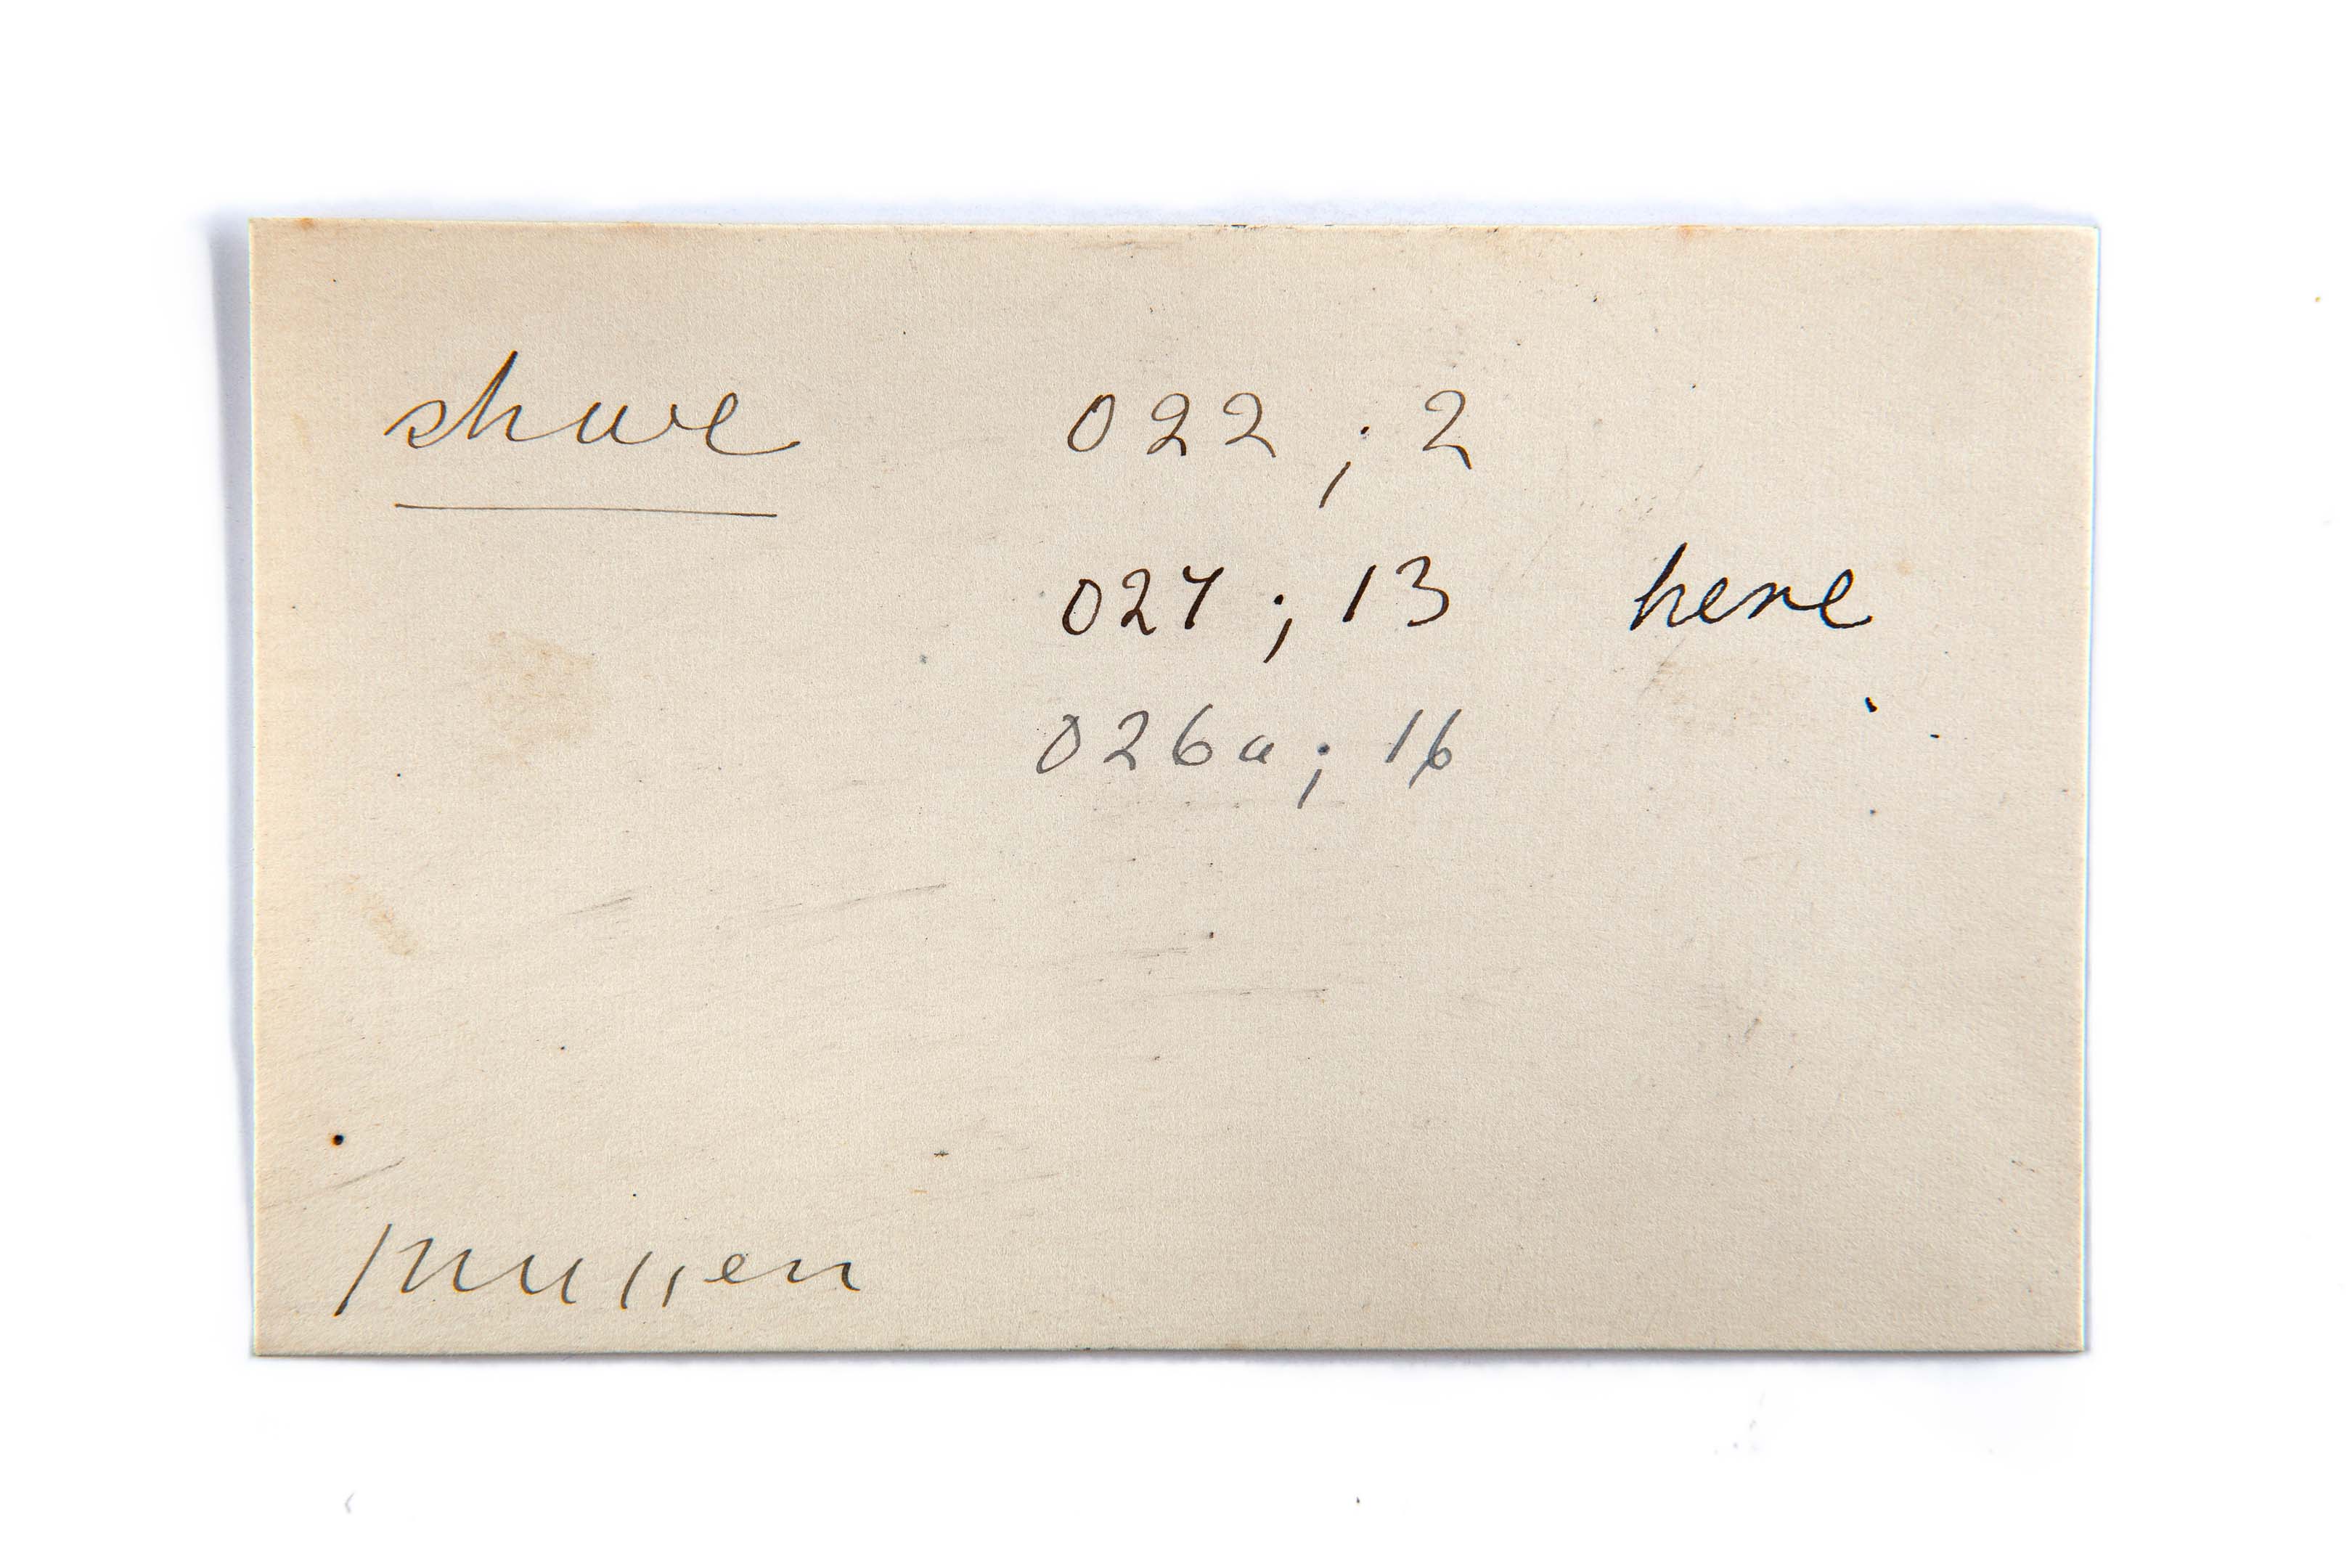 shwe 022 ; 2
027 ; 13 here
026a ; 16